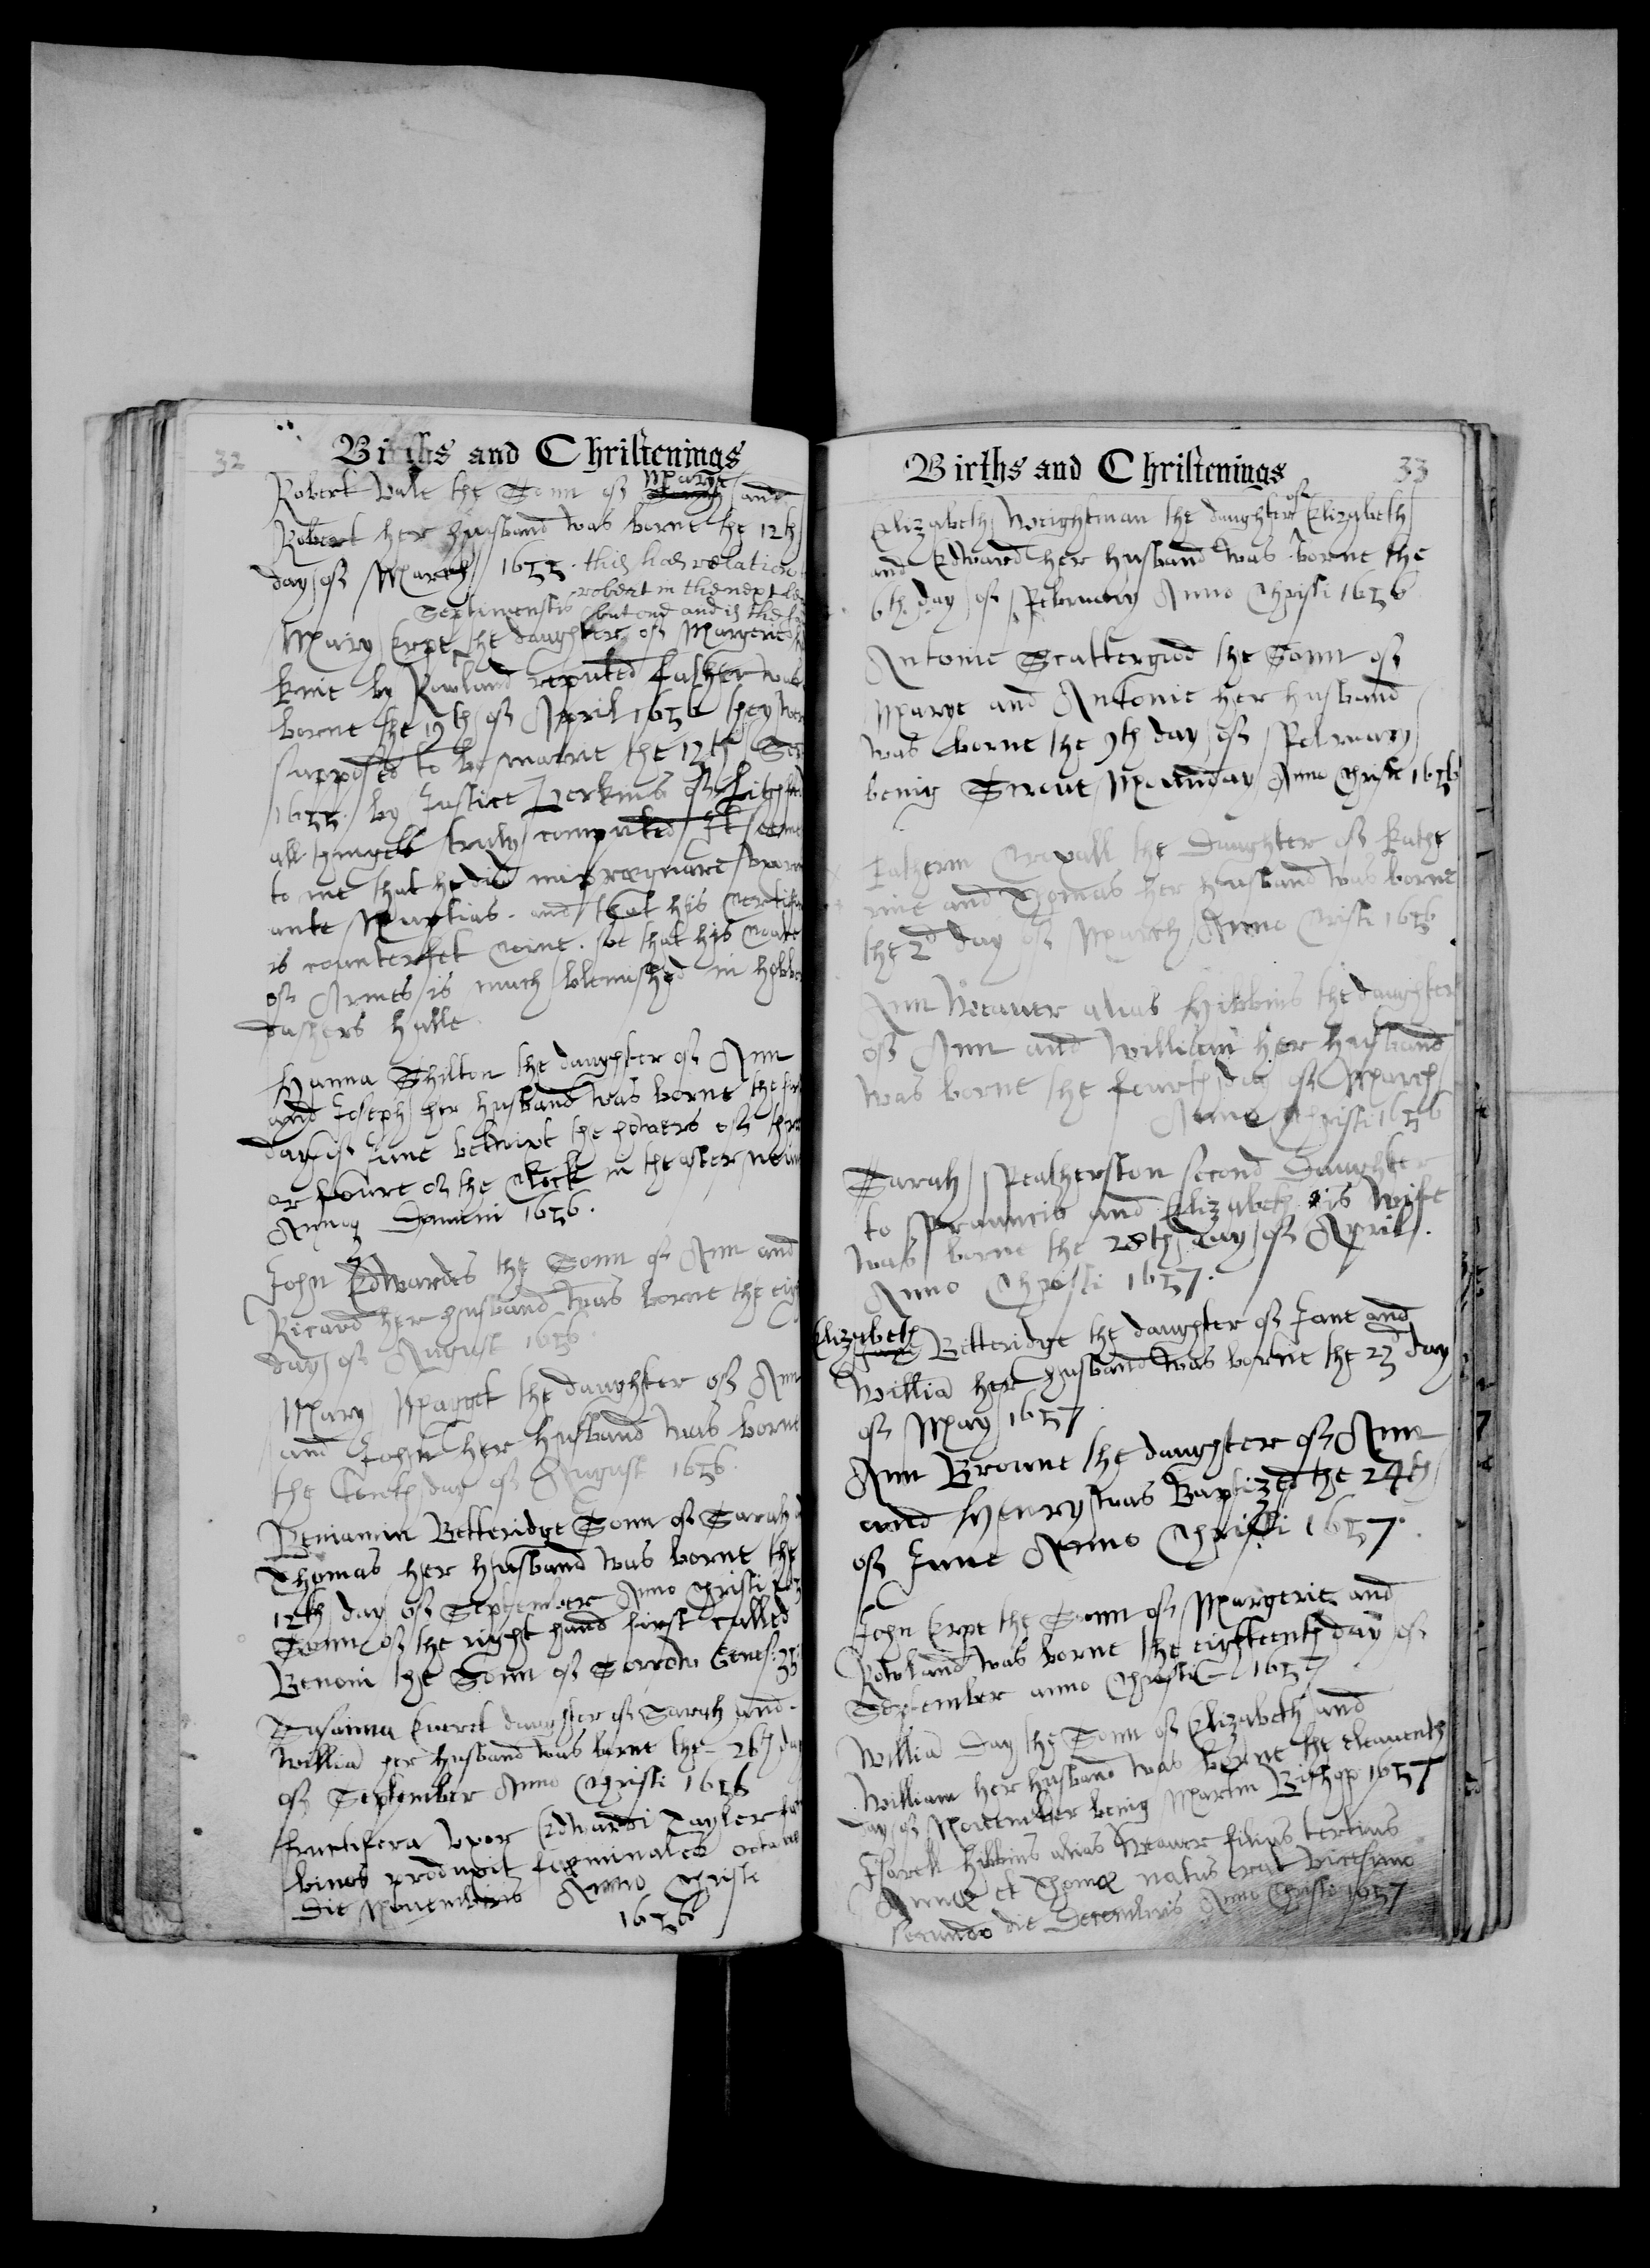 32
Births and Christenings
Robert Vale the Sonn of Marye and
Robert her husband was borne the 12th
day of March 1655. this hath relation
robert in the next
Septimenstis but one and is the
Mary Erpe the daughter of Margerie
Erpe by Rowland reputed father was
borne the 19th of April 1656 they wer
supposed to be marrie the 12th Sep
1655. by Justice Perkins of Lichfeild
all thinges truly computed It seeme
to me that he did impregnare
ante Nuptias. and that his Certif
is counterfet Coine. so that his Coate
of Armes is much blemished in Habber
dashers Halle.
Hanna Shilton the daughter of Ann
and Joseph her husband was borne the
day of June betwixt the howers of thre
or foure of the Clock in the after
Annoq Domini 1656.
John Edwardes the Sonn of Ann and
Ricard her husband was borne the eig
day of August 1656.
Mary the daughter of Ann
and John her husband was borne
the tenth day of August 1656.
Beniamin Betteridge Sonn of Sarah
Thomas her husband was borne the
12th day of September Anno Christi
Sonn of the right hand first called
Benoni the Sonn of Sorrow Genes: 35
Susanna Everet daughter of Sarah and
Willia her husband was borne the 26th day
of September Anno Christi 1656
fructifera Uxor Edwardi Tayler
binos produxit octavo
Die Novembris Anno Christi
1656
33
Births and Christenings
Elizabeth Weightman the daughter of Elizabeth
and Edward her husband was borne the
6th day of Februarie Anno Christi 1656
Antonie Scattergood the Sonn of
Marye and Antonie her husband
was borne the 9th day of Februarey
being Munday Anno Christi 1656
Katherin the Daughter of Kathe
rine and Thomas her husband was borne
the 2d day of March Anno Cristi 1656
Ann Weauer alias Hibbins the daughter
of Ann and William her husband
was borne the fourth day of March
Anno Christi 1656
Sarah Featherston second Daughter
to Frauncis and Elizabeth is Wife
was borne the 28th Day of April.
Anno Christi 1657.
Elizabeth
Jane Betteridge the daughter of Jane and
Willia her husband was borne the 23d day
of May 1657
Ann Browne the daughter of Ann
and Henry was Baptized the 24th
of June Anno Christi 1657.
John Erpe the Sonn of Margerie and
Rowland was borne the eighteenth day of
September anno Christi 1657
Willia Day the Sonn of Elizabeth and
William her husband was borne the eleauenth
day of Nouember being Martin Bishop 1657
Hibbins alias Weauer filius tertius
Annæ et Thomæ natus erat vicesimo
secundo die Decembris Anno Christi 1657